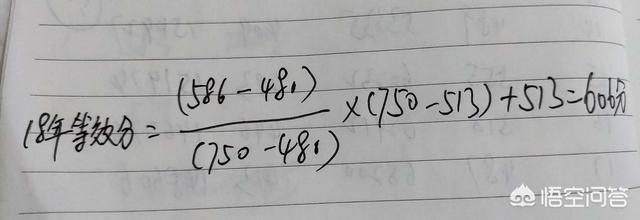 18年等效分 = (586-481) / (750-481) ×(750-513)+513=606分
悟空问答